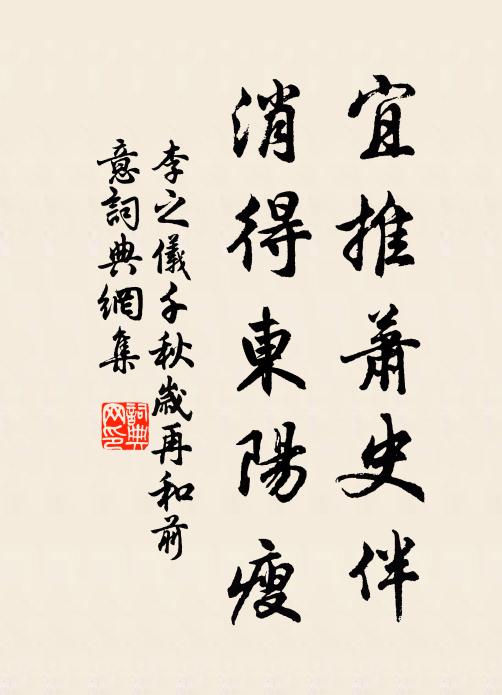 宜推蕭史伴
消得東陽瘦
李之儀千秋歲再和前
意詞典網集
詞典网印